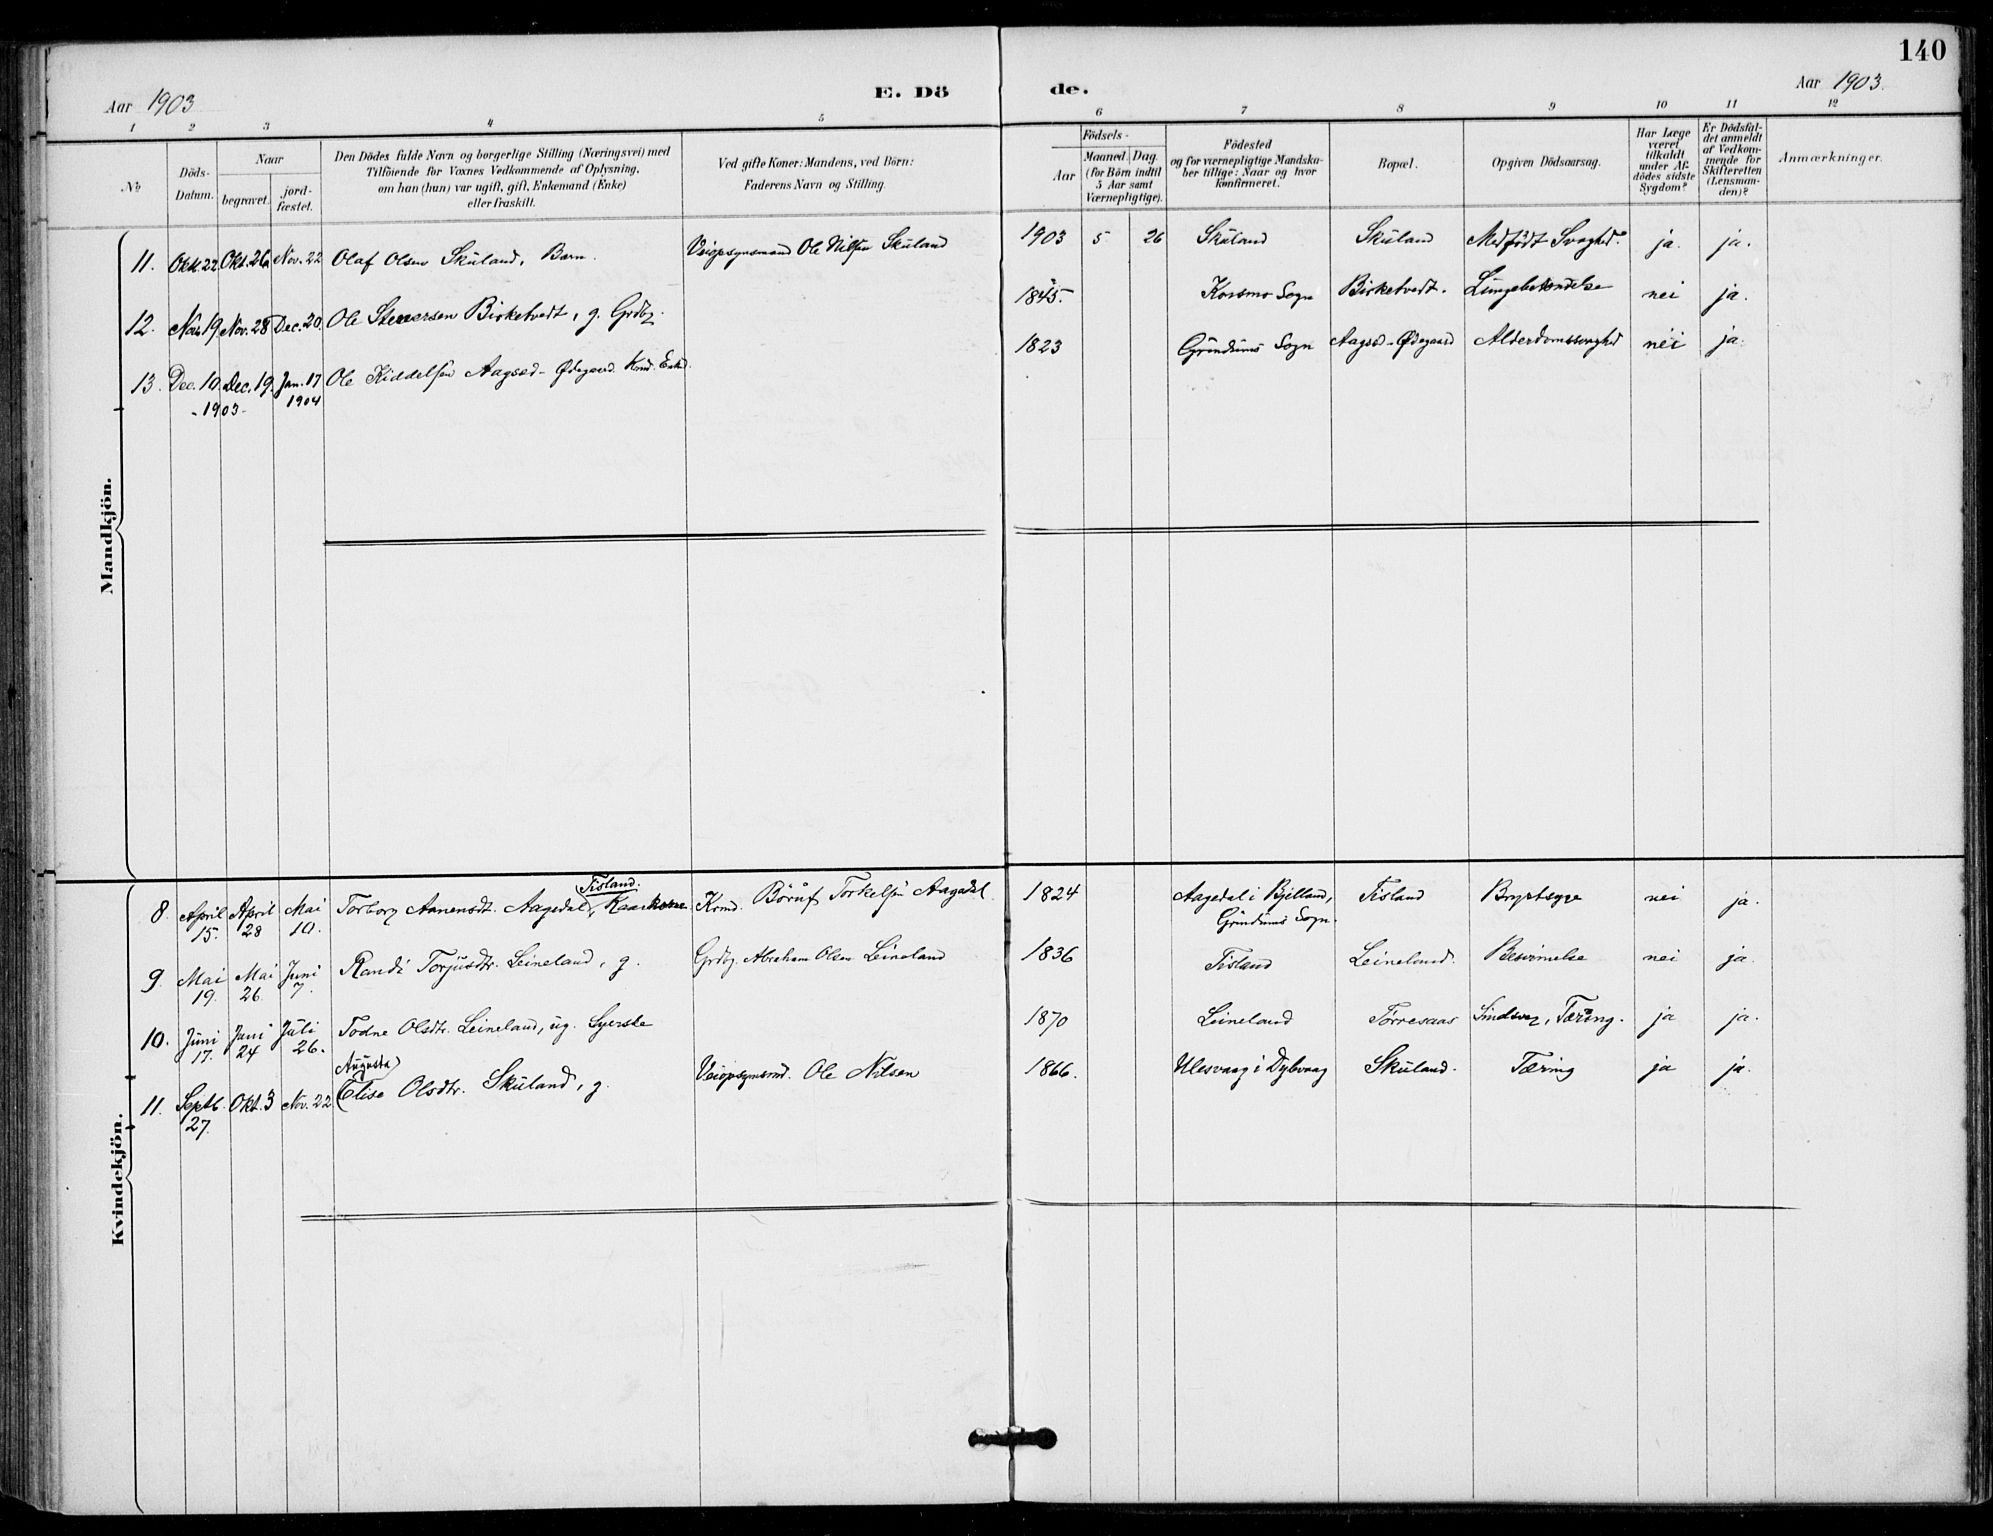 140
Aar 1903
E. Dö
de.
Aar 1903.
1 2 3 4 5 6 7 8 9 10 11 12
№
Döds-
Datum.
Naar
begravet.
jord-
fæstet.
Den Dödes fulde Navn og borgerlige Stilling (Næringsvei) med
Tilföiende for Voxnes Vedkommende af Oplysning,
om han (hun) var ugift, gift, Enkemand (Enke)
eller fraskilt.
Ved gifte Koner: Mandens, ved Börn:
Faderens Navn og Stilling.
Födsels-
Aar
Maaned. Dag.
(for Börn indtil
5 Aar samt
Værnepligtige).
Födested
og for værnepligtige Mandska-
ber tillige: Naar og hvor
konfirmeret.
Bopæl.
Opgiven Dödsaarsag.
Har Læge
været
tilkaldt
under Af-
dödes sidste
Sygdom?
Er Dödsfal-
det anmeldt
af Vedkom-
mende for
Skifteretten
(Lensman-
den)?
Anmærkninger.
Mandkjön.
11. Okt. 22 Okt. 26 Nov. 22 Olaf Olsen Skuland, Barn. Veiopsynsmand Ole Nilsen Skuland 1903 5 26 Skuland Skuland Medfödt Svaghed. ja. ja.
12. Nov. 19 Nov. 28 Dec. 20. Ole Birketvedt, g. Grdbr. 1845. Konsmo Sogn Birketvedt. Lungebetændelse nei ja.
13. Dec. 10. Dec. 19. Jan. 17 Ole Kiddelsen Aagsed-Ødegaard. Kmd. Enkd. 1823 Grindums Sogn Aagsed-Ødegaard Alderdomssvaghed nei ja.
- 1903 - 1904
Kvindekjön.
Fisland.
8. April April Mai Torborg Aanensdt. Aagedal, Kaarkone Kmd. Börüf Torkelsen Aagedal 1824 Aagedal i Bjelland, Fisland Brystsyge nei ja.
15. 28 10. Grindums Sogn.
9. Mai Mai Juni Randi Torjusdtr. Leineland, g. Grdbr. Abraham Olsen Leineland 1836 Fisland Leineland. Besvimelse nei ja.
19. 26. 7.
10. Juni Juni Juli Todne Olsdtr. Leineland, ug. Syerske 1870 Leineland Törresaas Sindssyg, Tæring. ja ja.
17. 24 26.
Augusta
11. Septb. Okt. 3 Nov. 22 Elise Olsdtr. Skuland, g. Veiopsynsmd. Ole Nilsen 1866. Ulesvaag i Dybvaag Skuland. Tæring ja ja.
27.